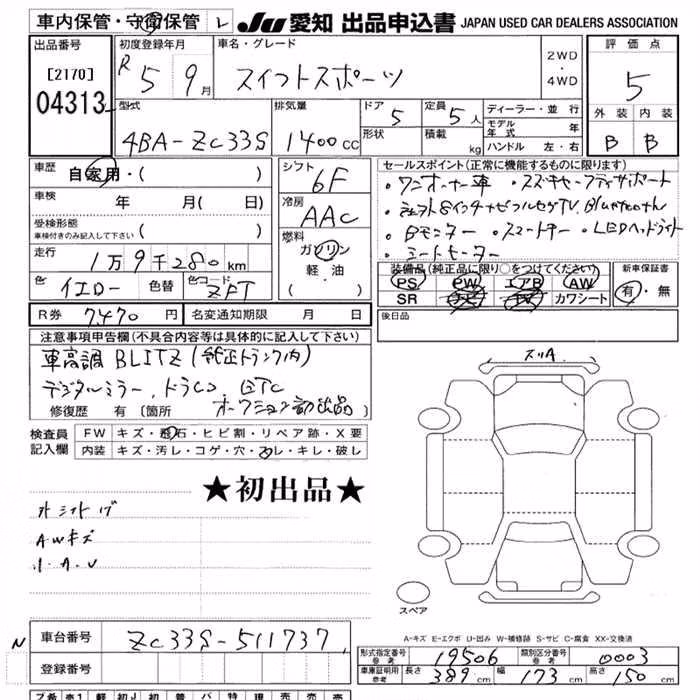 車内保管・守衛保管 レ
JU 愛知 出品申込書 JAPAN USED CAR DEALERS ASSOCIATION
出品番号
[2170]
04313
初度登録年月
R 5 9月
車名・グレード
スイフトスポーツ
2WD
・
4WD
評価点
5
外装 内装
B B
型式
4BA-ZC33S
排気量
1400CC
ドア
5
形状
定員
5人
積載
kg
ディーラー・並行
モデル年式 年
ハンドル 左・右
車歴
自家用・( )
車検
年 月( 日)
受検形態
車検付きのみ記入して下さい ( )
走行
1万9千280km
色
イエロー
色替
色コード
ZFT
シフト
6F
冷房
AAC
燃料
ガソリン
軽油
( ・ )
セールスポイント(正常に機能するものに限ります)
・ワンオーナー車 ・スズキセーフティサポート
・8インチナビフルセグTV, Bluetooth
・Bモニター ・スマートキー ・LEDヘッドライト
・シートヒーター
装備品(純正品に限り○をつけてください)
PS PW エアB AW
SR ナビ TV カワシート
新車保証書
有・無
後日品
R券 7,470円
名変通知期限 月 日
注意事項申告欄(不具合内容等は具体的に記入して下さい)
車高調 BLITZ(純正トランク内)
デジタルミラー、ドラレコ ETC
修復歴 有〔箇所 オークション初出品〕
検査員記入欄
FW キズ・飛石・ヒビ割・リペア跡・X要
内装 キズ・汚レ・コゲ・穴・スレ・キレ・破レ
★初出品★
AWキズ
小.A.U
スリA
スペア
A-キズ E-エクボ U-凹み W-補修跡 S-サビ C-腐食 XX-交換済
N
車台番号 ZC33S-511737
登録番号
形式指定番号 参考 19506
類別区分番号 参考 0003
車庫証明用 参考 長さ 389cm 幅 173cm 高さ 150cm